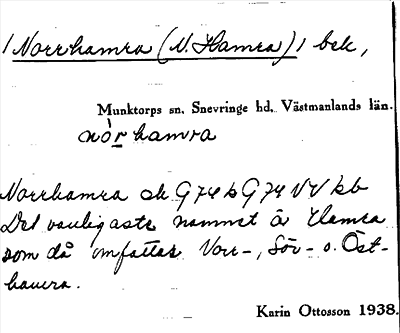 / Norrhamra (N. Hamra) / bek,
Munktorps sn. Snevringe hd. Västmanlands län.
nòr hamra
Norrhamra ek G 74 b G 74 NV kb
Det vanligaste namnet är Hamra
som då omfattar Norr-, Sör- o. Öst-
hamra.
Karin Ottosson 1938.